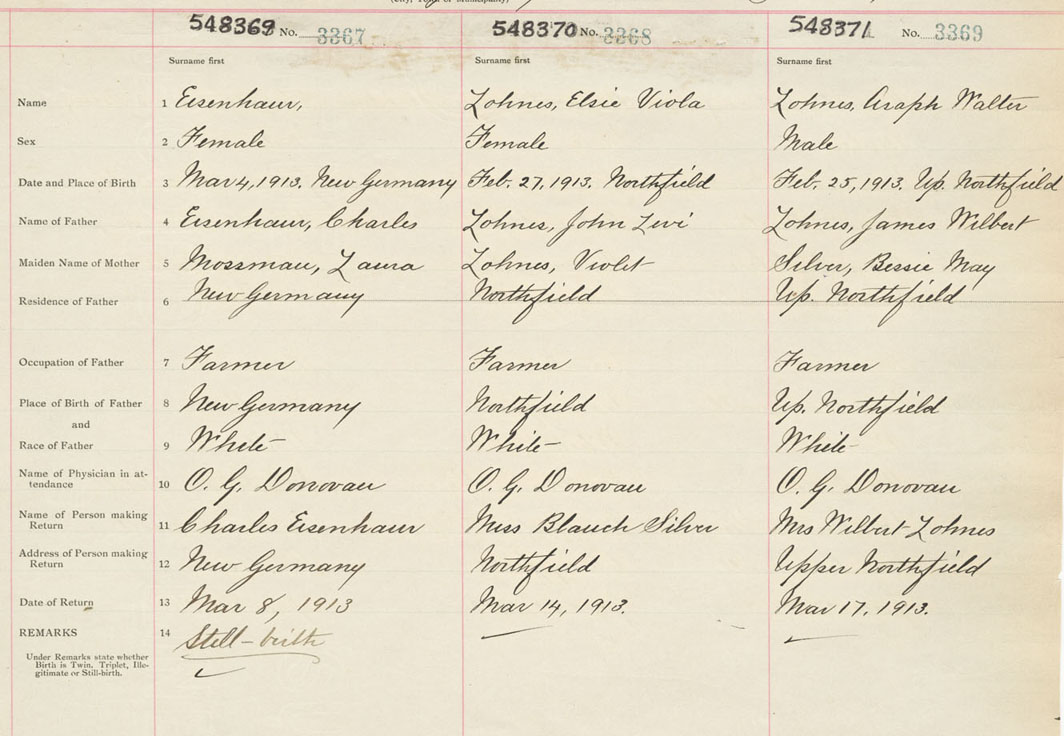 548369 No. 3367 548370 No. 3368 548371 No. 3369
Surname first Surname first Surname first
Name 1 Eisenhaur, Zohnes, Elsie Viola Zohnes, Araph Walter
Sex 2 Female Female Male
Date and Place of Birth 3 Mar 4, 1913. New Germany Feb. 27, 1913. Northfield Feb. 25, 1913. Up. Northfield
Name of Father 4 Eisenhaur, Charles Zohnes, John Levi Zohnes, James Wilbert
Maiden Name of Mother 5 Mossman, Laura Zohnes, Violet Silver, Bessie May
Residence of Father 6 New Germany Northfield Up. Northfield
Occupation of Father 7 Farmer Farmer Farmer
Place of Birth of Father 8 New Germany Northfield Up. Northfield
and
Race of Father 9 White White White
Name of Physician in at-
tendance 10 O. G. Donovan O. G. Donovan O. G. Donovan
Name of Person making
Return 11 Charles Eisenhaur Miss Blauch Silver Mrs Wilbert Zohnes
Address of Person making
Return 12 New Germany Northfield Upper Northfield
Date of Return 13 Mar 8, 1913 Mar 14, 1913. Mar 17, 1913.
REMARKS 14 Still-birth
Under Remarks state whether
Birth is Twin, Triplet, Ille-
gitimate or Still-birth.